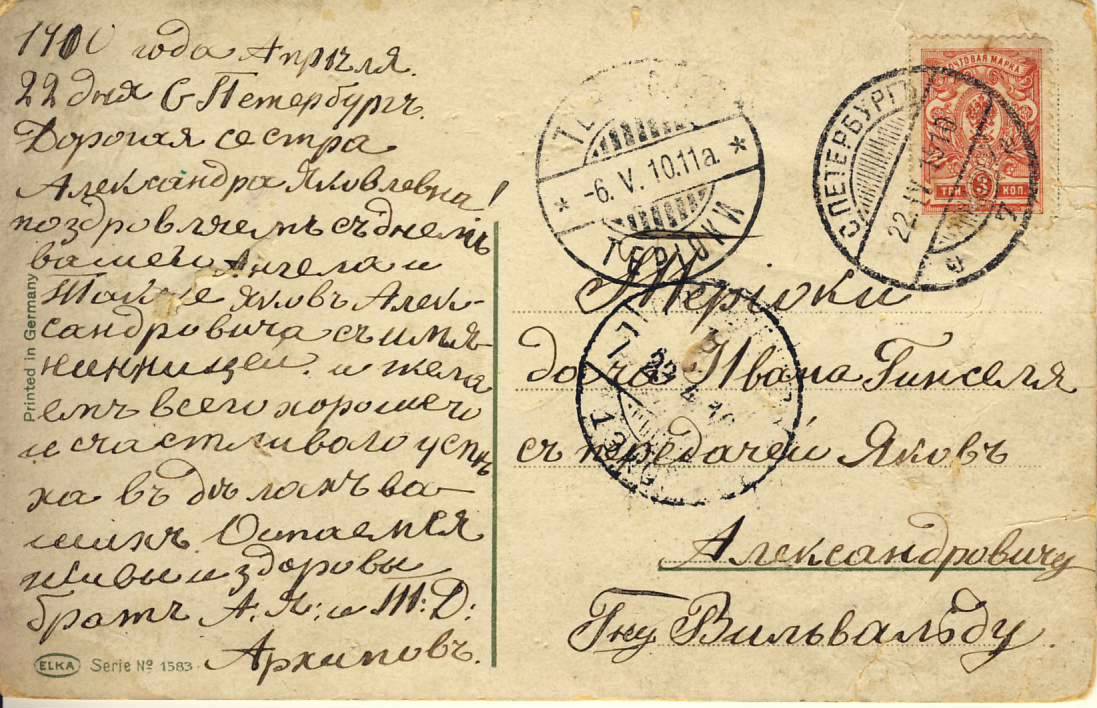 1910 года Апрѣля.
22 дня С Петербургъ.
Дорогая сестра
Александра Яковлевна!
поздровляемъ съ днемъ
вашей Ангела и
Также Яковъ Алек-
сандровича съ имя-
нинницей. и жела
емъ всего хорошего
и счастливого успѣ
ха въ дѣлахъ ва-
шихъ. Остаемся
живы и здоровы
братъ А. Я: и Т: Д:
Архиповъ.
Printed in Germany
ELKA Serie № 1583
ПОЧТОВАЯ МАРКА
ТРИ 3 КОП.
С.ПЕТЕРБУРГЪ
22 IV 1910
-6. V. 10.11a
ТЕРIОКИ
Терiоки
дача Ивана Гинселя
съ передачей Яковъ
Александровичу
Гну Вильвальду.